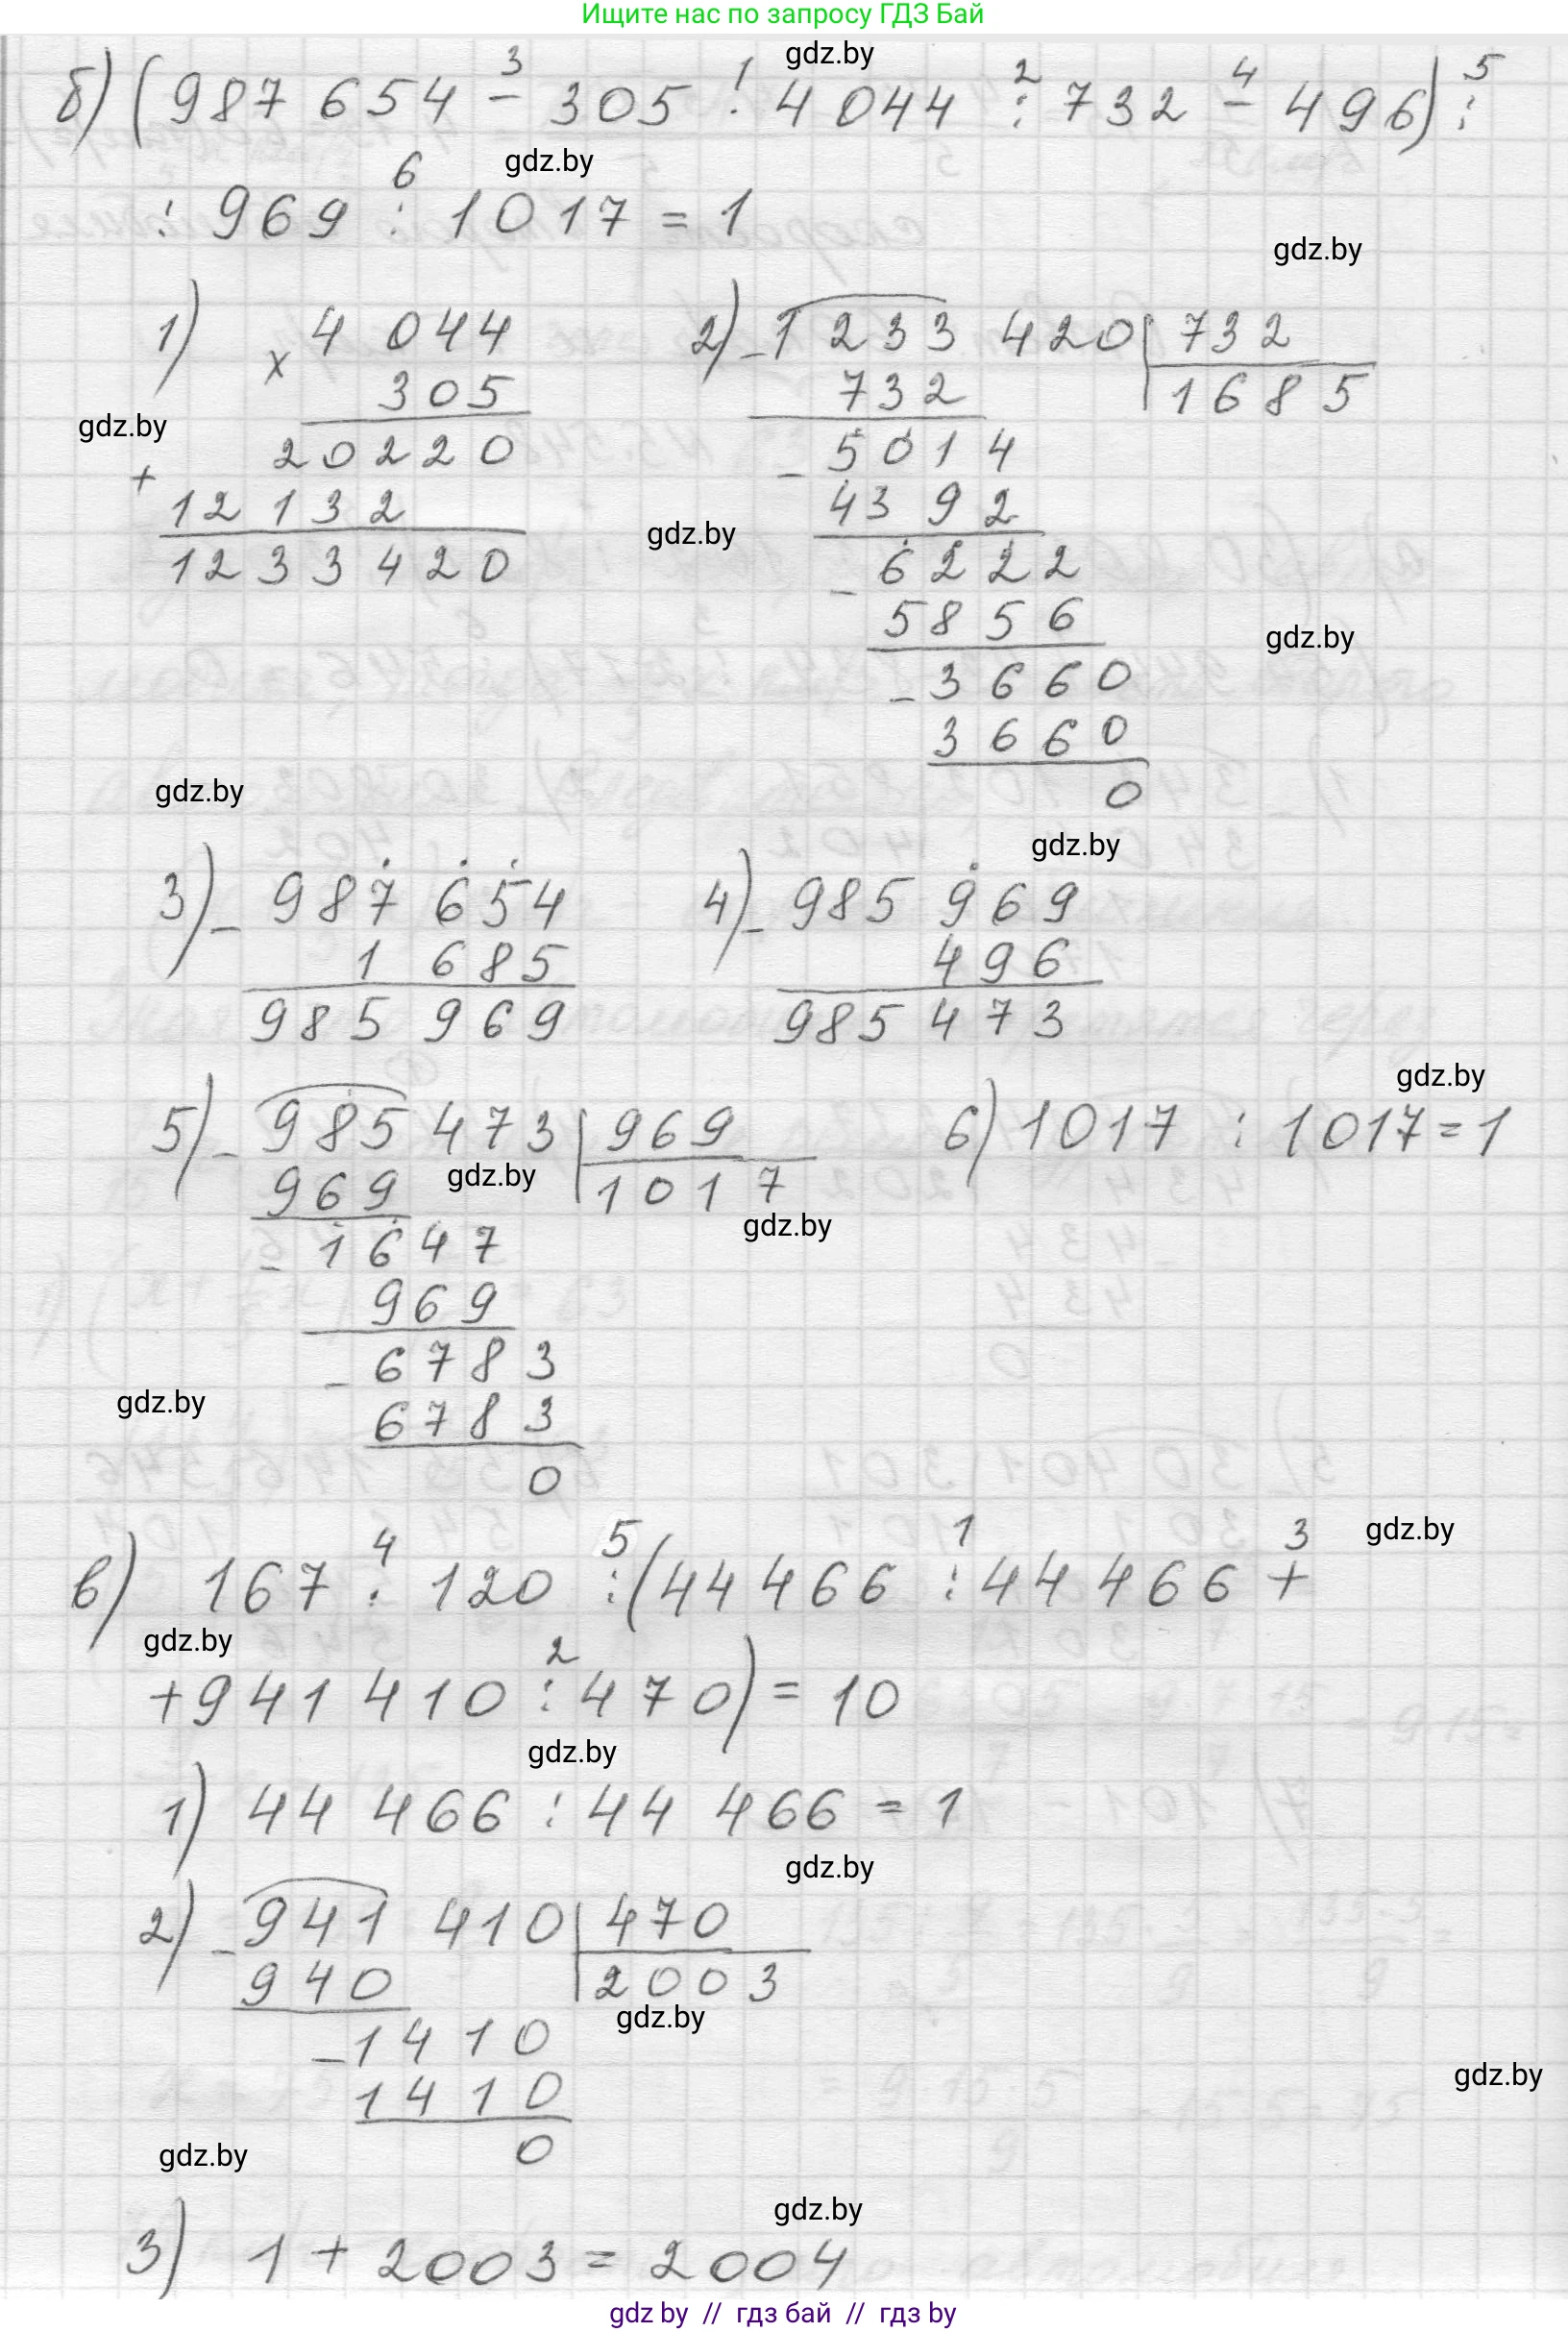 Ищите нас по запросу ГДЗ Бай
gdz.by
3 1 2 4 5
б) (987 654 - 305 · 4 044 : 732 - 496) :
gdz.by
6
: 969 : 1017 = 1
gdz.by
1) × 4 044
305
20220
+ 12132
1233420
gdz.by
2) - 1233 420 | 732
732 | 1685
- 5014
4392
gdz.by
- 6222
5856
gdz.by
- 3660
3660
0
gdz.by
gdz.by
3) - 987 654
1 685
985 969
4) - 985 969
496
985 473
gdz.by
5) - 985 473 | 969
969 | 1017
gdz.by
gdz.by
- 1647
969
- 6783
6783
0
gdz.by
6) 1017 : 1017 = 1
4 5 1 3
gdz.by
в) 167 · 120 : (44 466 : 44 466 +
gdz.by
2
+ 941 410 : 470) = 10
gdz.by
1) 44 466 : 44 466 = 1
gdz.by
2) - 941 410 | 470
940 | 2003
gdz.by
- 1410
1410
0
gdz.by
gdz.by
gdz.by
3) 1 + 2003 = 2004
gdz by // гдз бай // гдз by